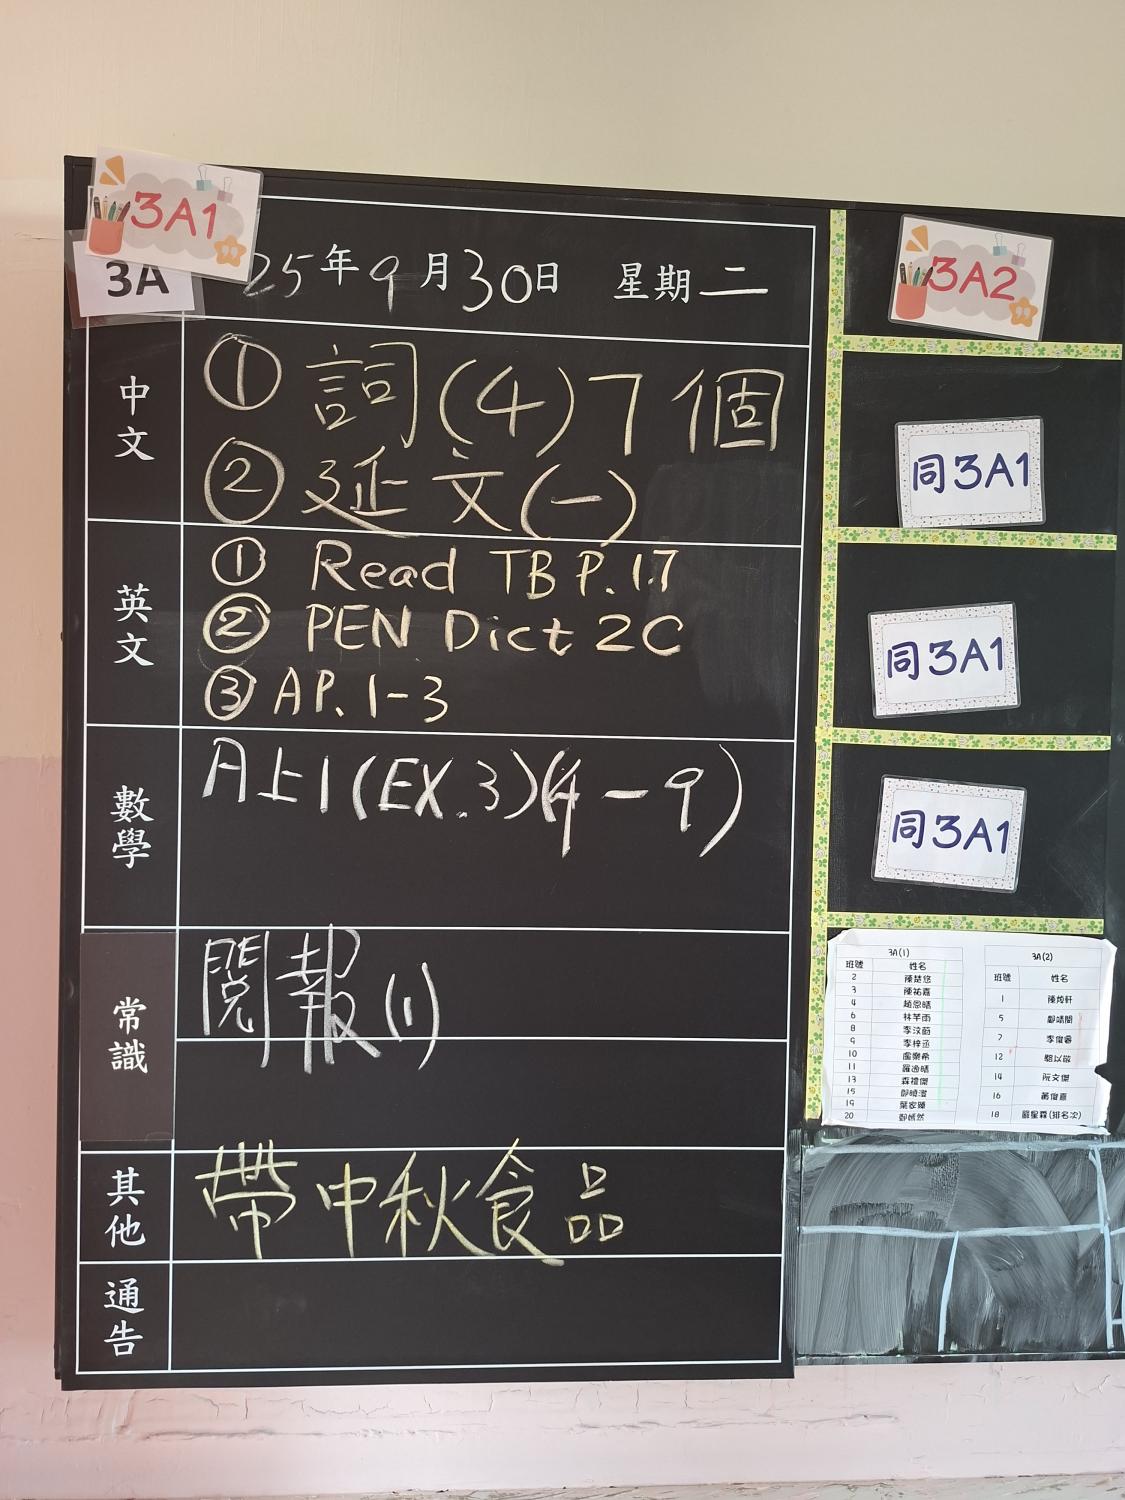 3A1
3A
25年9月30日 星期二
中文
① 詞(4)7個
② 延文(一)
英文
① Read TB P.1.7
② PEN Dict 2C
③ AP. 1-3
數學
A上1(EX.3)(4-9)
常識
閱報(1)
其他
帶中秋食品
通告
3A2
同3A1
同3A1
同3A1
3A(1)
班號 姓名
2 陳楚悠
3 陳祐嘉
4 趙恩晴
6 林芊雨
8 李汶蔚
9 李梓丞
10 盧樂希
11 羅逸晴
13 森禮傑
15
19 葉家臻
20 鄭皓然
3A(2)
班號 姓名
1 陳焯軒
5 鄺靖閎
7 李俊睿
12 駱以欣
14 阮文傑
16 黃俊熹
18 嚴星霖(排名次)